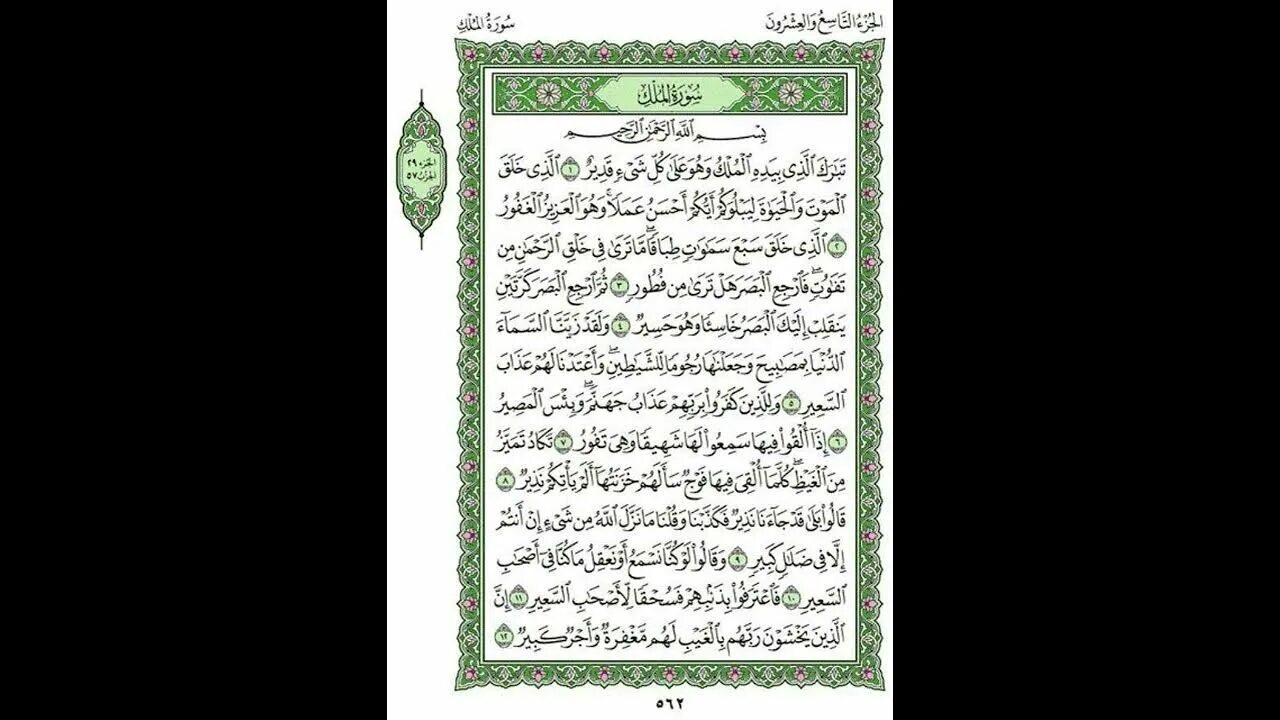 الجُزْءُ التَّاسِعُ وَالعِشْرُونَ
سُورَةُ المُلْكِ
سُورَةُ المُلْكِ
الجزء ٢٩
الحزب ٥٧
بِسْمِ اللَّهِ الرَّحْمَٰنِ الرَّحِيمِ
تَبَارَكَ ٱلَّذِى بِيَدِهِ ٱلْمُلْكُ وَهُوَ عَلَىٰ كُلِّ شَىْءٍ قَدِيرٌ ١ ٱلَّذِى خَلَقَ
ٱلْمَوْتَ وَٱلْحَيَوٰةَ لِيَبْلُوَكُمْ أَيُّكُمْ أَحْسَنُ عَمَلًا ۚ وَهُوَ ٱلْعَزِيزُ ٱلْغَفُورُ
٢ ٱلَّذِى خَلَقَ سَبْعَ سَمَٰوَٰتٍ طِبَاقًا ۖ مَّا تَرَىٰ فِى خَلْقِ ٱلرَّحْمَٰنِ مِن
تَفَٰوُتٍ ۖ فَٱرْجِعِ ٱلْبَصَرَ هَلْ تَرَىٰ مِن فُطُورٍ ٣ ثُمَّ ٱرْجِعِ ٱلْبَصَرَ كَرَّتَيْنِ
يَنقَلِبْ إِلَيْكَ ٱلْبَصَرُ خَاسِئًا وَهُوَ حَسِيرٌ ٤ وَلَقَدْ زَيَّنَّا ٱلسَّمَآءَ
ٱلدُّنْيَا بِمَصَٰبِيحَ وَجَعَلْنَٰهَا رُجُومًا لِّلشَّيَٰطِينِ ۖ وَأَعْتَدْنَا لَهُمْ عَذَابَ
ٱلسَّعِيرِ ٥ وَلِلَّذِينَ كَفَرُوا۟ بِرَبِّهِمْ عَذَابُ جَهَنَّمَ ۖ وَبِئْسَ ٱلْمَصِيرُ
٦ إِذَآ أُلْقُوا۟ فِيهَا سَمِعُوا۟ لَهَا شَهِيقًا وَهِىَ تَفُورُ ٧ تَكَادُ تَمَيَّزُ
مِنَ ٱلْغَيْظِ ۖ كُلَّمَآ أُلْقِىَ فِيهَا فَوْجٌ سَأَلَهُمْ خَزَنَتُهَآ أَلَمْ يَأْتِكُمْ نَذِيرٌ ٨
قَالُوا۟ بَلَىٰ قَدْ جَآءَنَا نَذِيرٌ فَكَذَّبْنَا وَقُلْنَا مَا نَزَّلَ ٱللَّهُ مِن شَىْءٍ إِنْ أَنتُمْ
إِلَّا فِى ضَلَٰلٍ كَبِيرٍ ٩ وَقَالُوا۟ لَوْ كُنَّا نَسْمَعُ أَوْ نَعْقِلُ مَا كُنَّا فِىٓ أَصْحَٰبِ
ٱلسَّعِيرِ ١٠ فَٱعْتَرَفُوا۟ بِذَنۢبِهِمْ فَسُحْقًا لِّأَصْحَٰبِ ٱلسَّعِيرِ ١١ إِنَّ
ٱلَّذِينَ يَخْشَوْنَ رَبَّهُم بِٱلْغَيْبِ لَهُم مَّغْفِرَةٌ وَأَجْرٌ كَبِيرٌ ١٢
٥٦٢